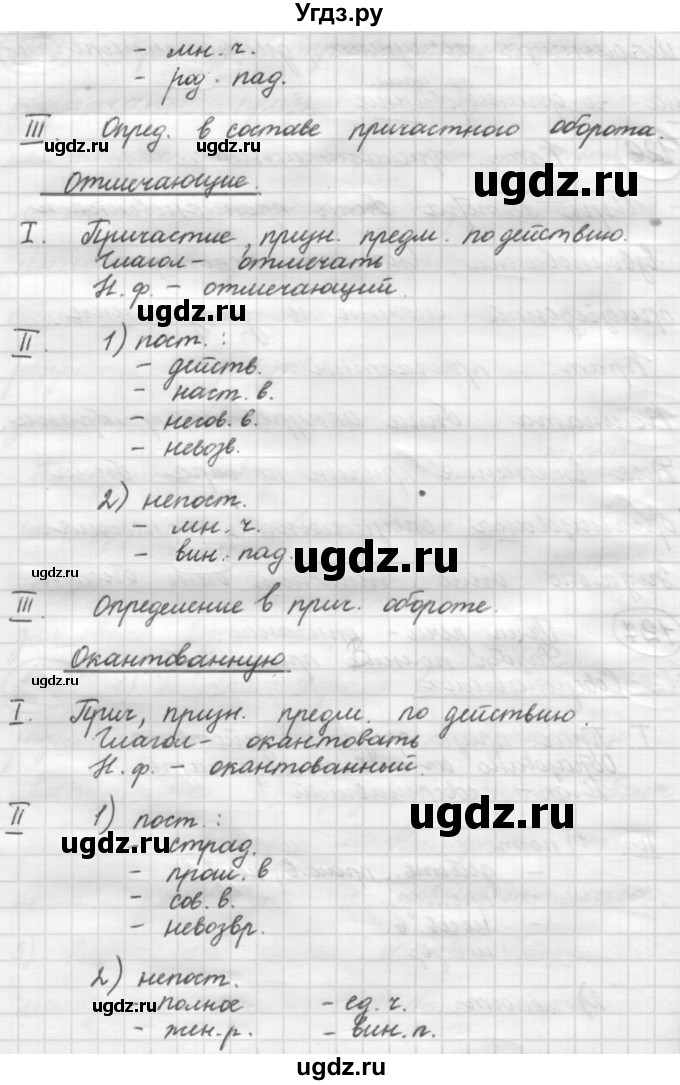 Угдз.ру
- мн. ч.
- род. пад.
III. Опред. в составе причастного оборота.
ugdz.ru ugdz.ru ugdz.ru
Отмечающие.
I. Причастие, призн. предм. по действию.
Глагол - отмечать
ugdz.ru
Н. ф. - отмечающий.
ugdz.ru
II. 1) пост. :
- действ.
- наст. в.
- несов. в.
- невозв.
2) непост.
- мн. ч.
- вин. пад.
ugdz.ru
ugdz.ru
III. Определение в прич. обороте.
ugdz.ru
Окантованную.
ugdz.ru
I. Прич, призн. предм. по действию.
Глагол - окантовать
ugdz.ru
Н. ф. - окантованный.
II 1) пост. :
ugdz.ru
ugdz.ru
- страд.
- прош. в
- сов. в.
- невозвр.
2) непост.
ugdz.ru
- полное - ед. ч.
- жен. р. - вин. п.
ugdz.ru